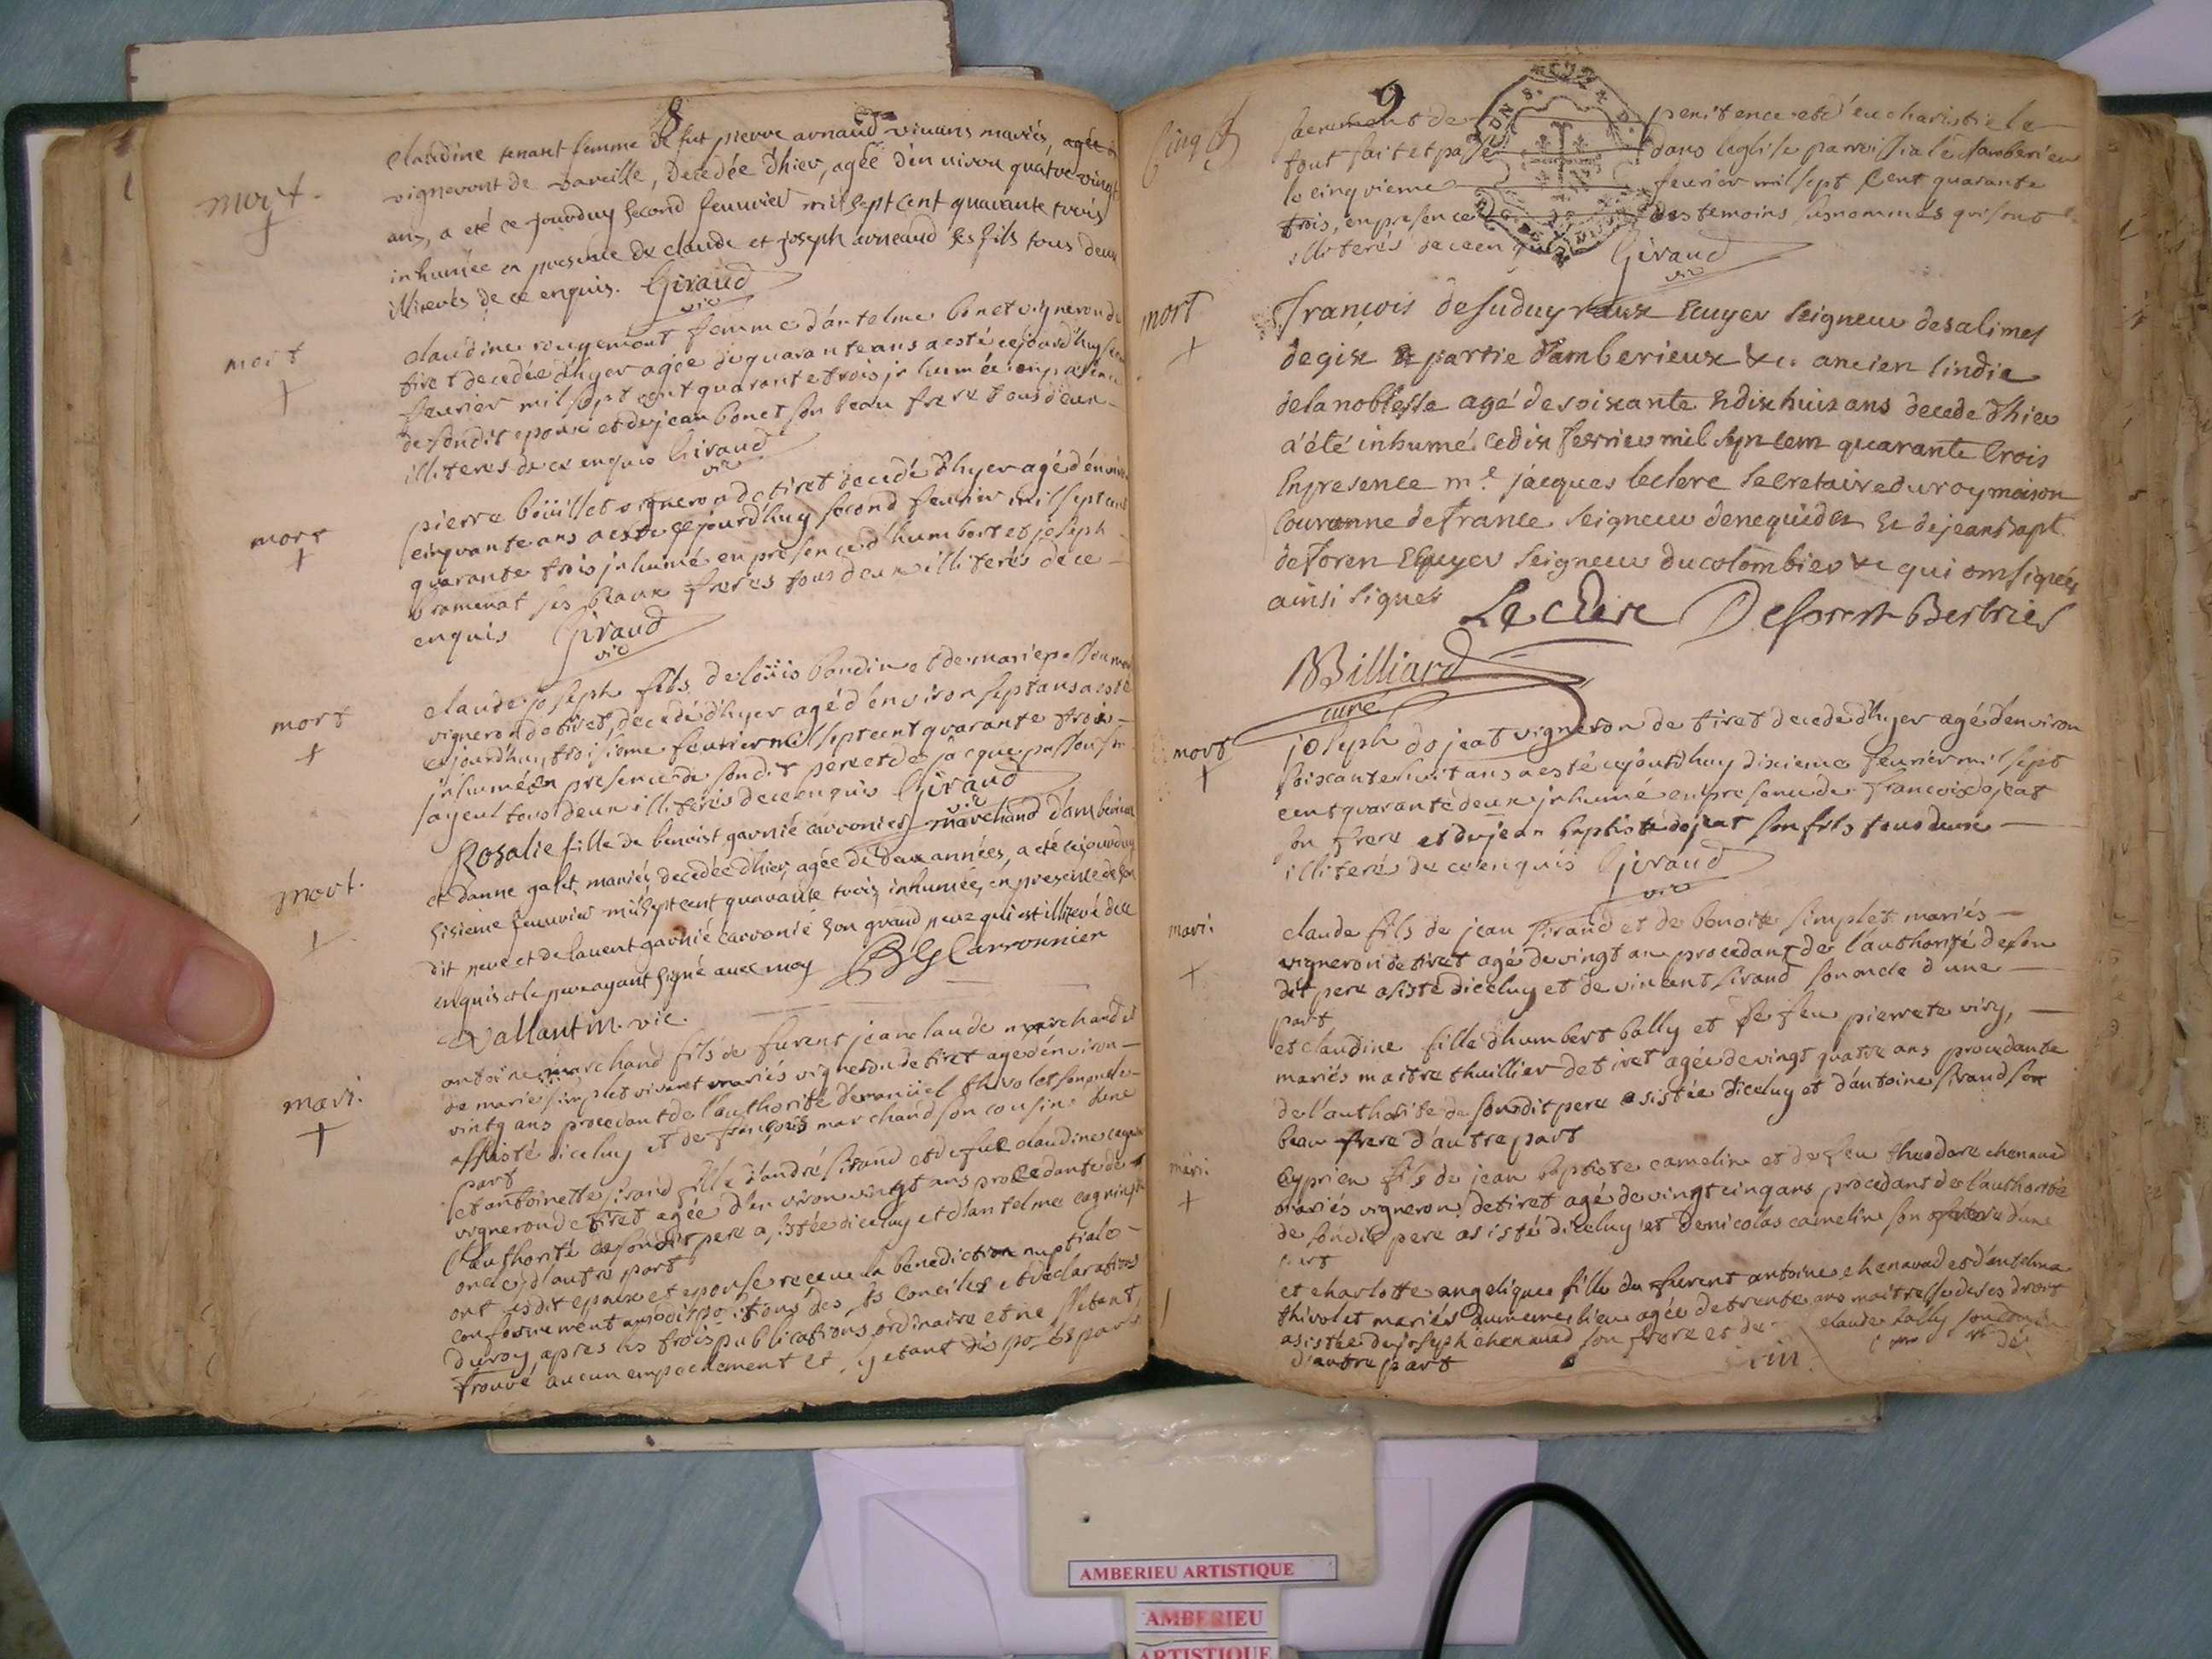 8
mort.
claudine tenant femme de fut pierre arnaud vivans mariés, agée
vigneront de vareille, decedée d'hier, agée d'environ quatre vingt
ans, a eté ce jourduy second feuvrier mil sept cent quarante trois
inhumée en presence de claude et joseph arnaud ses fils tous deux
illiterés de ce enquis. Giraud
vic
mort
claudine rougemont femme d'antelme bonet vigneron de
tiret decedée d'hyer agée de quarante ans a esté cejourd'huy
feurier mil sept cent quarante trois inhumée en presence
de sondit epoux et de jean bonet son beau frere tous deux
illiteres de ce enquis Giraud
vic
mort
pierre boüillet vigneron de tiret decedé d'hyer agé d'environ
cinquante ans a esté cejourd'huy second feurier mil sept cent
quarante trois inhumé en presence d'humbert et joseph
bramerat ses beaux freres tous deux illiterés de ce
enquis Giraud
vic
mort
claude joseph fils de loüis baudin et de marie
vigneron de tiret, decedé d'hyer agé d'environ sept ans a esté
cejourd'huy troisieme feurier mil sept cent quarante trois
inhumé en presence de sondit pere et de jacque
ayeul tous deux illiterés de ce enquis Giraud
vic
mort.
Rosalie fille de benoist garnié carronier marchand d'amberieux
et d'anne galet, mariés, decedée d'hier, agée de deux années, a eté cejourduy
sisieme feuvrier mil sept cent quarante trois, inhumée, en presence de son
dit pere et de laurent garnié carronié son grand pere qui est illiteré de ce
enquis et le pere ayant signé avec moy BG Carronnier
Vallantin. vic.
mari.
antoine marchand fils de furent jean claude marchand et
de marie simplet vivant mariés vigneron de tiret agé d'environ
vintg ans procedant de l'authorité d'emanüel thivolet son oncle
assisté d'iceluy et de françois marchand son cousin d'une
part
et antoinette sirand fille d'andré sirand et de fue claudine
vigneron de tiret agée d'environ vingt ans procedante de
l'authorité de sondit pere asistée d'iceluy et d'antelme cagnin
oncle d'autre part
ont esdit epoux et epouse receu la benediction nuptiale
conformement aux dispositions des sts conciles et declarations
du roy, apres les trois publications ordinaire et ne s'etant
trouvé aucun empechement et s'y etant disposés par
9
sacrement de penitence et d'eucharistie le
tout fait et passé dans leglise parroissiale d'amberieu
le cinqvieme feurier mil sept Cent quarante
trois, en presence des temoins susnommés qui sont
illiterés de ce enquis Giraud
vic
mort
françois desuduyraux Ecuyer seigneur desalimes
degix & partie d'amberieux &c. ancien sindic
de la noblesse agé de soixante & dix huit ans decede d'hier
a été inhumé ce dix fevrier mil sept cent quarante trois
En presence mre jacques leclerc secretaire du roy maison
couronne de france seigneur et de jean bapt.
deforen Ecuyer seigneur du colombier &c qui ont signés
ainsi signer Leclerc
Billiard
curé
mort
joseph dojeat vigneron de tiret decedé d'hyer agé d'environ
soixante huit ans a esté cejourd'huy dixieme feurier mil sept
cent quarante deux inhumé en presence de françois dojeat
son frere et de jean baptiste dojeat son fils tous deux
illiteré de ce enquis Giraud
vic
mari.
claude fils de jean sirand et de benoite simplet mariés
vigneron de tiret agé de vingt an procedant de l'authorité de son
dit pere asisté d'iceluy et de vincent sirand son oncle d'une
part
et claudine fille d'humbert bally et de feu pierrete viry,
mariés maitre thuillier de tiret agée de vingt quatre ans procedante
de l'authorité de sondit pere asistée d'iceluy et d'antoine sirand son
beau frere d'autre part
mari.
Cyprien fils de jean baptiste camelin et de feu theodore chenavad
mariés vigneron de tiret agé de vingt cinq ans procedant de l'authorité
de sondit pere asisté d'iceluy et de nicolas camelin son frere d'une
part
et charlotte angelique fille de furent antoine chenavad et d'antelma
thivolet mariés du meme lieu agée de trente ans maitresse de ses droit
asistée de joseph chenavad son frere et de claude bally son cousin
d'autre part
AMBERIEU ARTISTIQUE
AMBERIEU
ARTISTIQUE